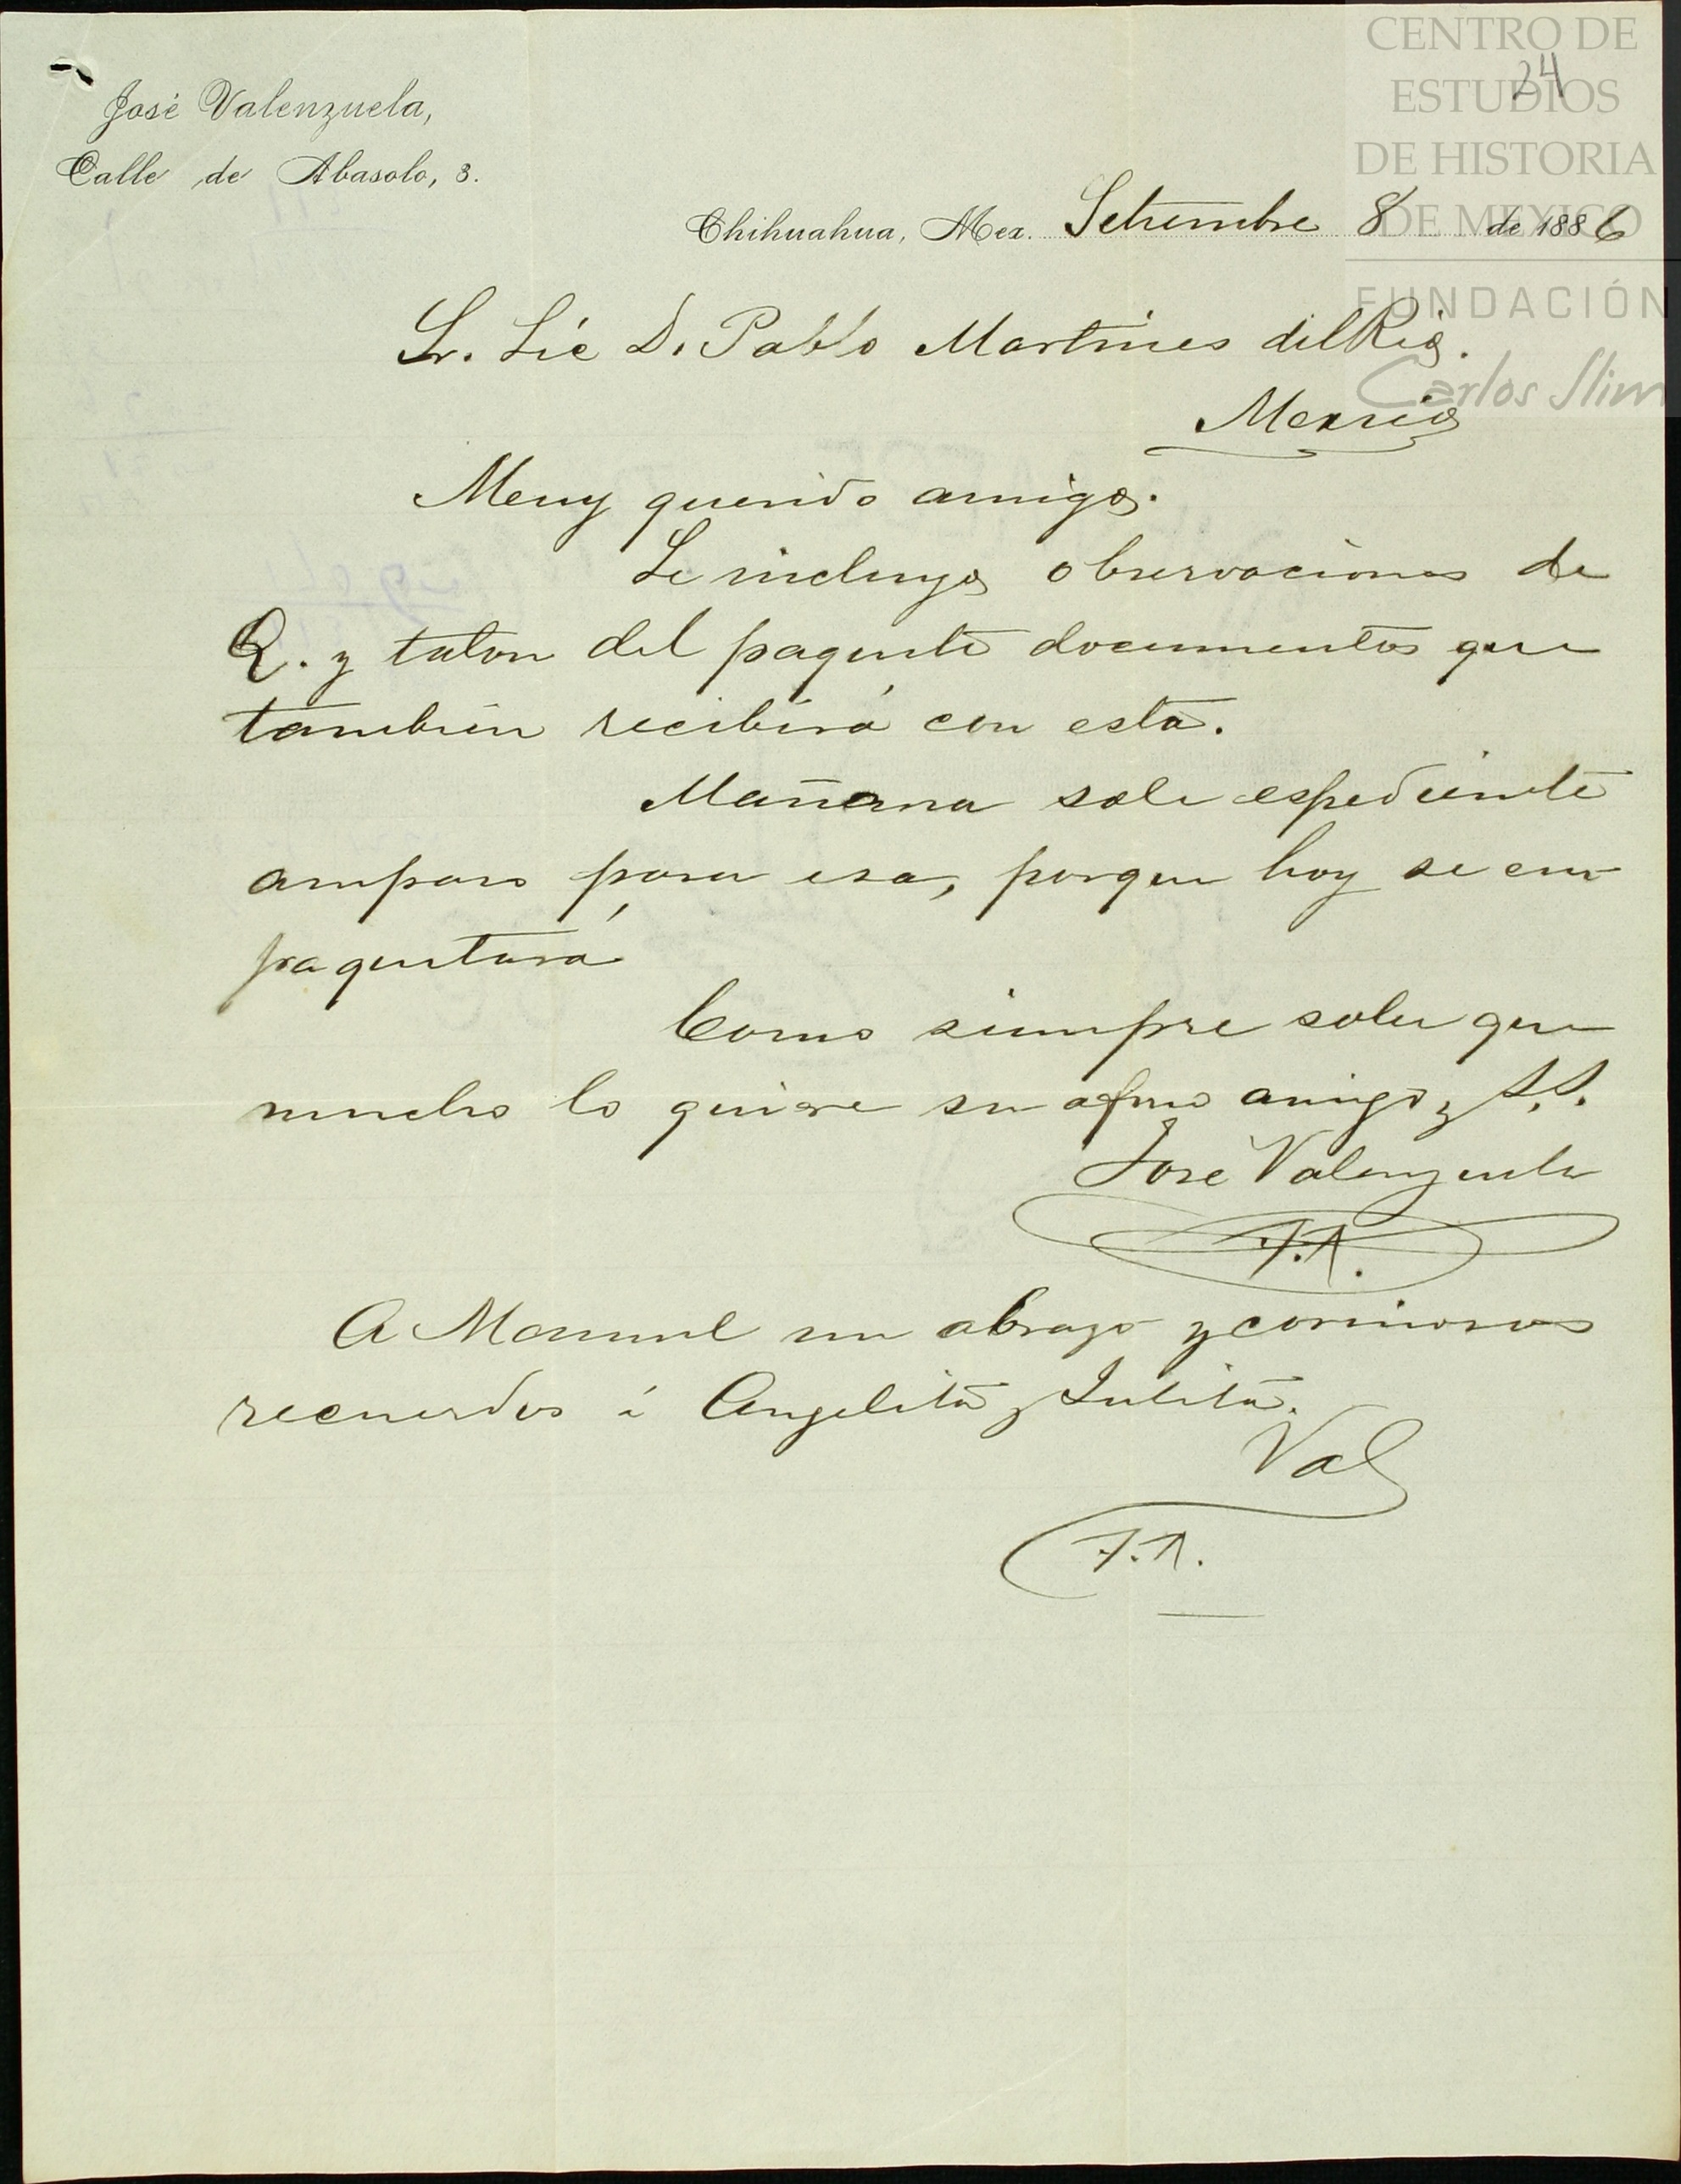 CENTRO DE
ESTUDIOS
DE HISTORIA
DE MEXICO
FUNDACIÓN
Carlos Slim
24
José Valenzuela,
Calle de Abasolo, 3.
Chihuahua, Mex. Setiembre 8 de 1886
Sr. Lic D. Pablo Martines del Rio.
Mexico
Muy querido amigo.
Le incluyo observaciones de
Q. y talon del paquete documentos que
tambien recibirá con esta.
Mañana sale espediente
amparo para esa, porque hoy se em
paquetará
Como siempre sabe que
mucho lo quiere su afmo amigo y S.S.
José Valenzuela
A Manuel un abrazo y cariñosos
recuerdos á Angelita y Julita.
Val